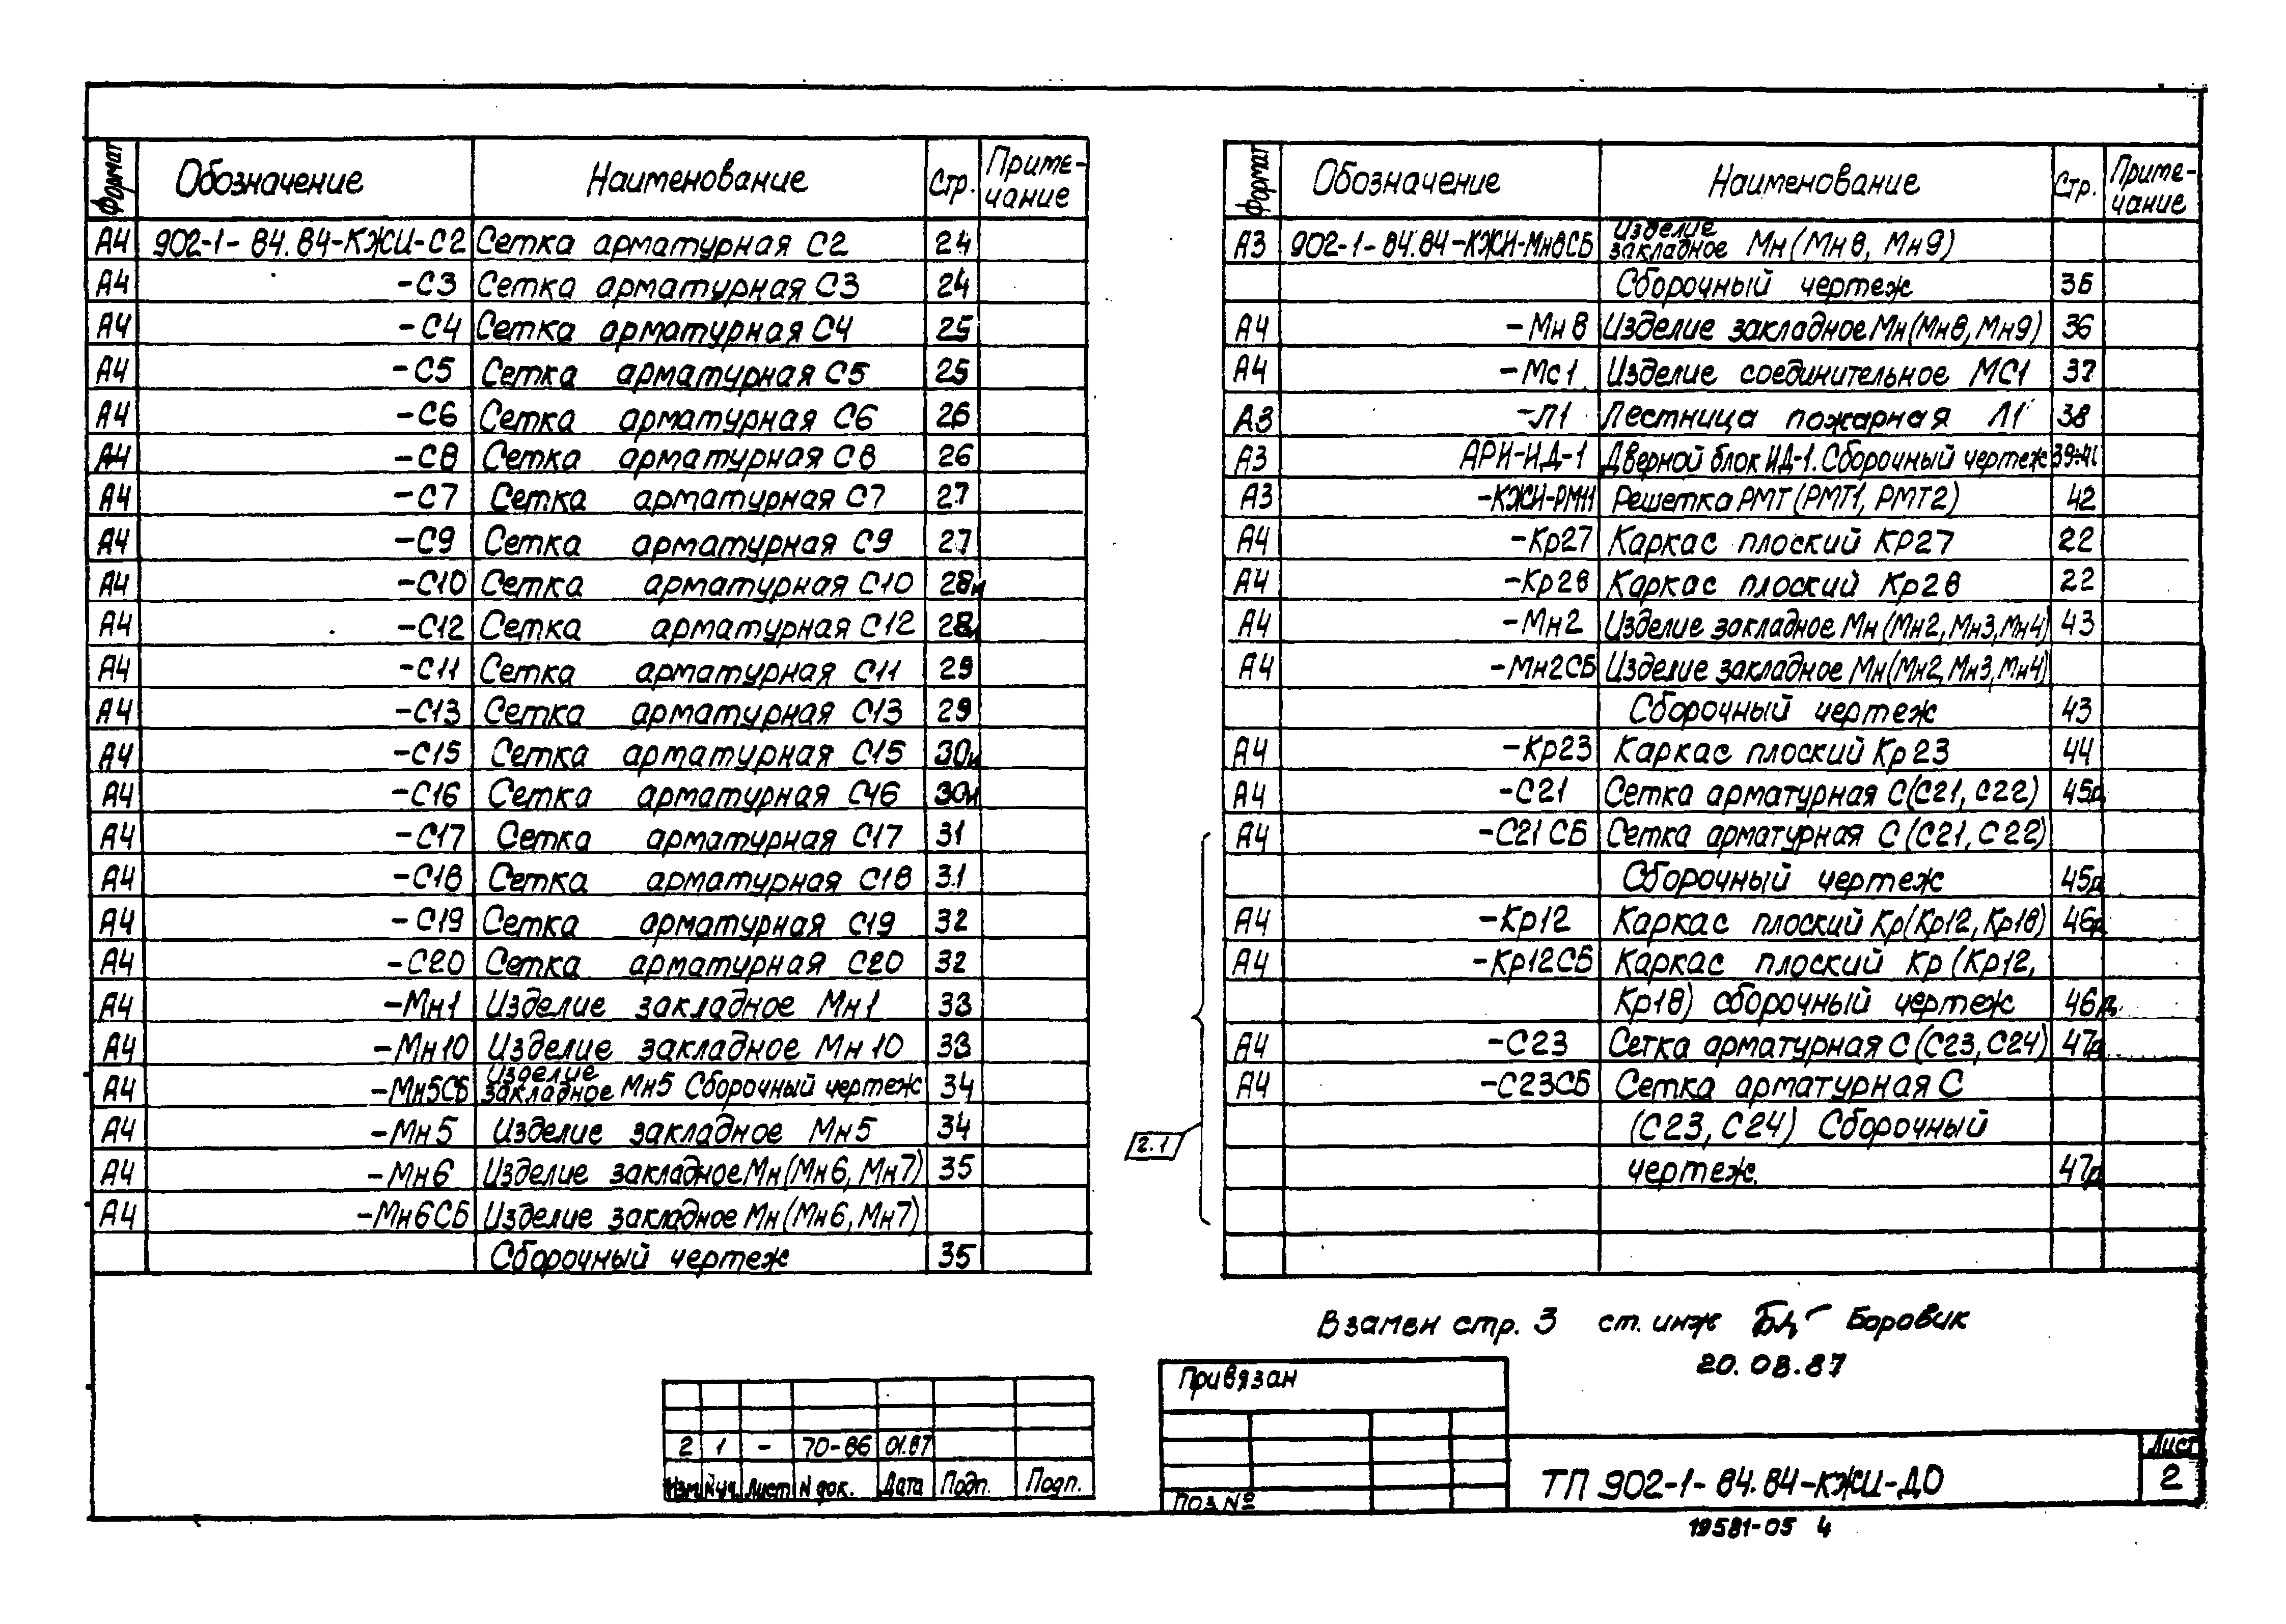 Формат Обозначение Наименование Стр. Приме-
чание
А4 902-1-84.84-КЖИ-С2 Сетка арматурная С2 24
А4 -С3 Сетка арматурная С3 24
А4 -С4 Сетка арматурная С4 25
А4 -С5 Сетка арматурная С5 25
А4 -С6 Сетка арматурная С6 26
А4 -С8 Сетка арматурная С8 26
А4 -С7 Сетка арматурная С7 27
А4 -С9 Сетка арматурная С9 27
А4 -С10 Сетка арматурная С10 28и
А4 -С12 Сетка арматурная С12 28и
А4 -С11 Сетка арматурная С11 29
А4 -С13 Сетка арматурная С13 29
А4 -С15 Сетка арматурная С15 30и
А4 -С16 Сетка арматурная С16 30и
А4 -С17 Сетка арматурная С17 31
А4 -С18 Сетка арматурная С18 31
А4 -С19 Сетка арматурная С19 32
А4 -С20 Сетка арматурная С20 32
А4 -Мн1 Изделие закладное Мн1 33
А4 -Мн10 Изделие закладное Мн10 33
А4 -Мн5СБ Изделие закладное Мн5 Сборочный чертеж 34
А4 -Мн5 Изделие закладное Мн5 34
А4 -Мн6 Изделие закладное Мн(Мн6, Мн7) 35
А4 -Мн6СБ Изделие закладное Мн(Мн6, Мн7)
Сборочный чертеж 35
Формат Обозначение Наименование Стр. Приме-
чание
А3 902-1-84.84-КЖИ-Мн8СБ Изделие закладное Мн(Мн8, Мн9)
Сборочный чертеж 36
А4 -Мн8 Изделие закладное Мн(Мн8, Мн9) 36
А4 -Мс1 Изделие соединительное МС1 37
А3 -Л1 Лестница пожарная Л1 38
А3 АРИ-ИД-1 Дверной блок ИД-1. Сборочный чертеж 39-41
А3 -КЖИ-РМТ1 Решетка РМТ(РМТ1, РМТ2) 42
А4 -Кр27 Каркас плоский КР27 22
А4 -Кр28 Каркас плоский Кр28 22
А4 -Мн2 Изделие закладное Мн(Мн2, Мн3, Мн4) 43
А4 -Мн2СБ Изделие закладное Мн(Мн2, Мн3, Мн4)
Сборочный чертеж 43
А4 -Кр23 Каркас плоский Кр23 44
А4 -С21 Сетка арматурная С(С21, С22) 45д
А4 -С21СБ Сетка арматурная С(С21, С22)
Сборочный чертеж 45д
А4 -Кр12 Каркас плоский Кр(Кр12, Кр18) 46д
А4 -Кр12СБ Каркас плоский Кр(Кр12,
Кр18) сборочный чертеж 46д
А4 -С23 Сетка арматурная С(С23, С24) 47д
А4 -С23СБ Сетка арматурная С
(С23, С24) Сборочный
чертеж. 47д
2.1
Взамен стр. 3 ст. инж Боровик
20.08.87
2 1 - 70-86 01.87
Изм N уч. Лист N док. Дата Подп. Подп.
Привязан
поз №
ТП 902-1-84.84-КЖИ-ДО
Лист
2
19581-05 4